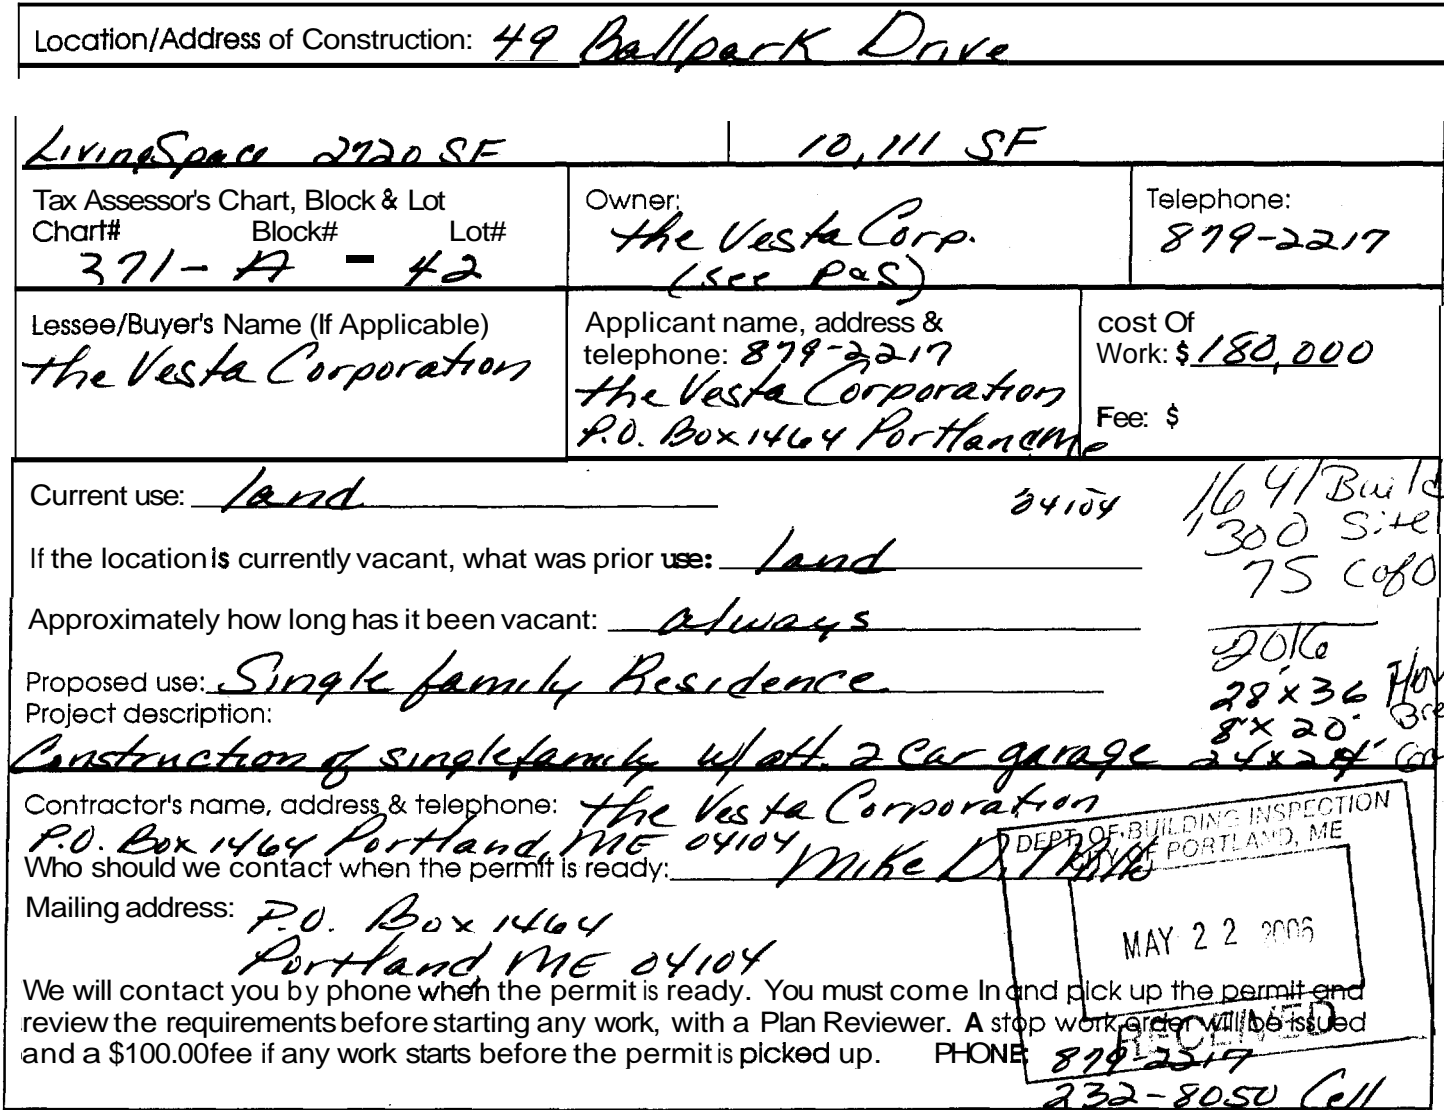 Location/Address of Construction: 49 Ballpark Drive
Living Space 2720 SF 10,111 SF
Tax Assessor's Chart, Block & Lot
Chart# Block# Lot#
371 - A - 42
Owner:
the Vesta Corp.
(see P&S)
Telephone:
879-2217
Lessee/Buyer's Name (If Applicable)
the Vesta Corporation
Applicant name, address &
telephone: 879-2217
the Vesta Corporation
P.O. Box 1464 Portland Me
04104
cost Of
Work: $ 180,000
Fee: $
Current use: land
If the location is currently vacant, what was prior use: land
Approximately how long has it been vacant: always
1641 Build
300 Site
75 CofO
2016
Proposed use: Single family Residence
28 x 36
8 x 20
24 x 24
Project description:
Construction of single family w/ att. 2 Car garage
Contractor's name, address & telephone: the Vesta Corporation
P.O. Box 1464 Portland, ME 04104
Who should we contact when the permit is ready: Mike
Mailing address: P.O. Box 1464
Portland, ME 04104
DEPT. OF BUILDING INSPECTION
CITY OF PORTLAND, ME
MAY 22 2006
RECEIVED
We will contact you by phone when the permit is ready. You must come In and pick up the permit and
review the requirements before starting any work, with a Plan Reviewer. A stop work order will be issued
and a $100.00fee if any work starts before the permit is picked up. PHONE: 879-2217
232-8050 Cell